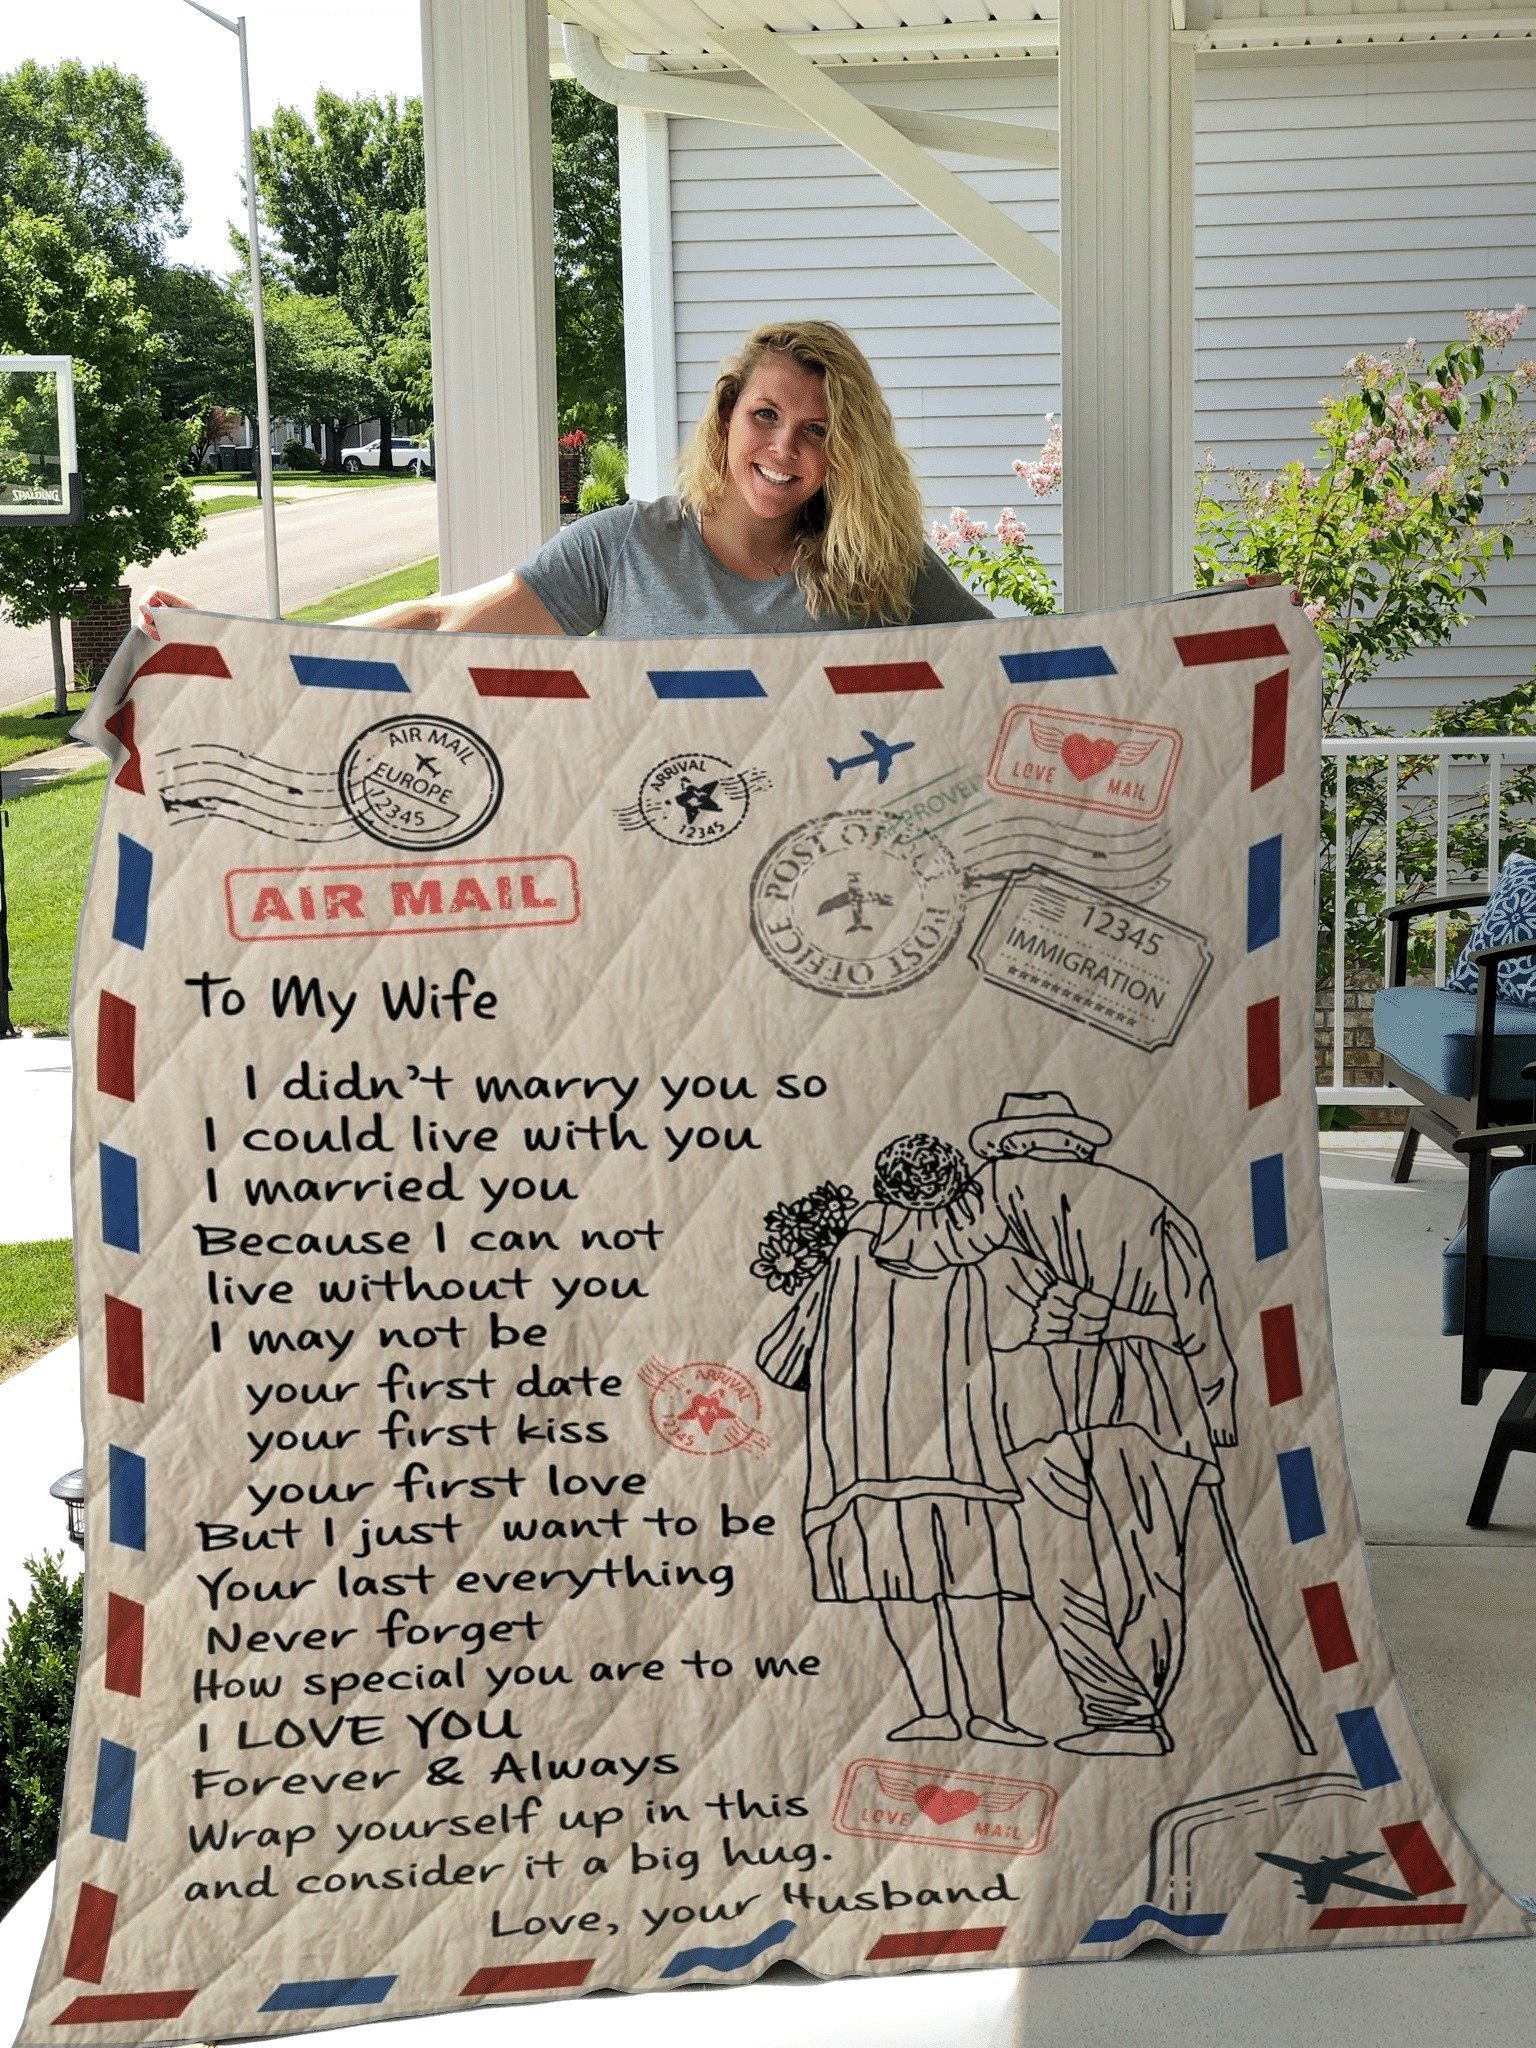 SPALDING
AIR MAIL
EUROPE
12345
ARRIVAL
12345
APPROVED
LOVE MAIL
POST OFFICE POST OFFICE
12345
IMMIGRATION
AIR MAIL
To My Wife
I didn't marry you so
I could live with you
I married you
Because I can not
live without you
I may not be
your first date
your first kiss
your first love
ARRIVAL
12345
But I just want to be
Your last everything
Never forget
How special you are to me
I LOVE YOU
Forever & Always
Wrap yourself up in this
and consider it a big hug.
LOVE MAIL
Love, your Husband